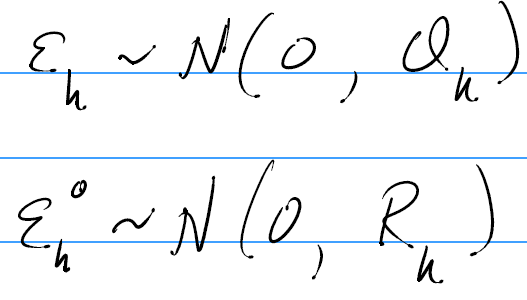 ε_k ~ N(0, Q_k)
ε_k^o ~ N(0, R_k)